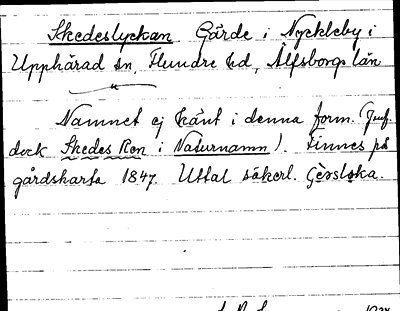 Skedeslyckan Gärde i Nyckleby i
Upphärad sn, Flundre hd, Älfsborgs län
Namnet ej känt i denna form. (Jmf.
dock Skedes Ren i Naturnamn). Finnes på
gårdskarta 1847. Uttal säkerl.